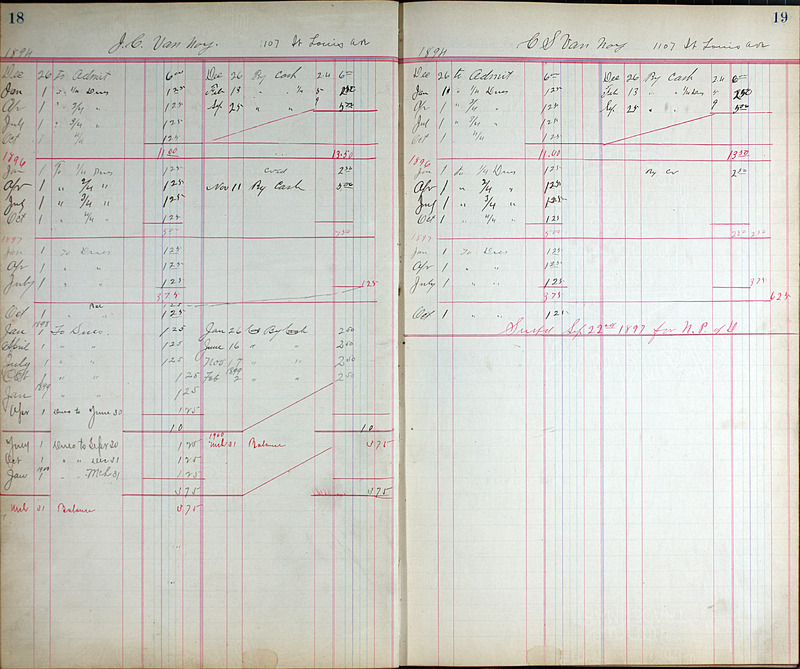 18
J. C. Van Noy. 1107 St Louis ave
1894
Dec 26 To Admit 6 00 Dec 26 By Cash 24 6 00
Jan 1 " 1/4 Dues 1 25 Feb 13 " " 1/4 5 2 50
Apr 1 " 2/4 " 1 25 Sep 25 " " 9 5 00
July 1 " 3/4 " 1 25
Oct 1 4/4 1 25
11.00 13.50
1896
Jan 1 To 1/4 Dues 1 25 Cred 2 50
Apr 1 " 2/4 " 1 25 Nov 11 By Cash 5 00
July 1 " 3/4 " 1 25
Oct 1 " 4/4 " 1 25
5 00 7 50
1897
Jan 1 To Dues 1 25
Apr 1 " " 1 25
July 1 " " 1 25 1 25
3 75
Oct 1 " " 1 25
Jan 1898 1 To Dues 1 25 Jan 26 By Cash 2 00
April 1 " " 1 25 June 16 " " 2 00
July 1 " " 1 25 Nov 17 " "
Oct 1 " " 1 25 Feb 1899 2 " " 2 50
Jan 1899 1 " " 1 25
Apr 1 Dues to June 30 1 25
10 10
July 1 Dues to Sept 30 1 25 1900 Mch 31 Balance 3 75
Oct 1 " " Dec 31 1 25
Jan 1900 1 " " Mch 31 1 25
3 75 3 75
Mch 31 Balance 3 75
19
C S Van Noy 1107 St Louis ave
1894
Dec 26 to Admit 6 00 Dec 26 By Cash 24 6 00
Jan 1 " 1/4 Dues 1 25 Feb 13 " " 1/4 Dues 5 2 50
Apr " 2/4 " 1 25 Sep 25 " " 9 5 00
July 1 " 3/4 " 1 25
Oct 1 4/4 1 25
11.00 13 50
1896
Jan 1 To 1/4 Dues 1 25 By Cr 2 50
Apr 1 " 2/4 " 1 25
July 1 " 3/4 " 1 25
Oct 1 " 4/4 " 1 25
5 00 2 50 2 50
1897
Jan 1 To Dues 1 25
Apr 1 " " 1 25
July 1 " " 1 25 3 75
3 75 6 25
Oct 1 " " 1 25
Susfd Sep 22nd 1897 for N. P. of D